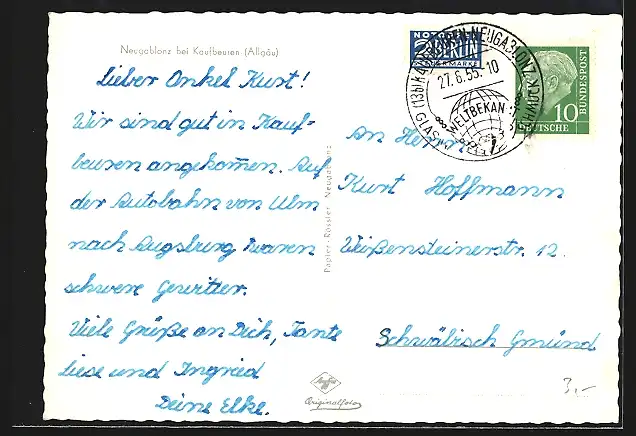 Neugablonz bei Kaufbeuren (Allgäu)
Lieber Onkel Kurt!
Wir sind gut in Kauf=
beuren angekommen. Auf
der Autobahn von Ulm
nach Augsburg waren
schwere Gewitter.
Viele Grüße an Dich, Tante
Liese und Ingried
Deine Elke.
Papier-Rössler Neugablonz
Agfa
Originalfoto
NOTOPFER
2 BERLIN
STEUERMARKE
(13b) KAUFBEUREN-NEUGABLONZ
27.6.55.-10
WELTBEKANNT
GLAS
SCHMUCK
10
DEUTSCHE BUNDESPOST
An Herrn
Kurt Hoffmann
Weißensteinerstr. 12.
Schwäbisch Gmünd
3,-